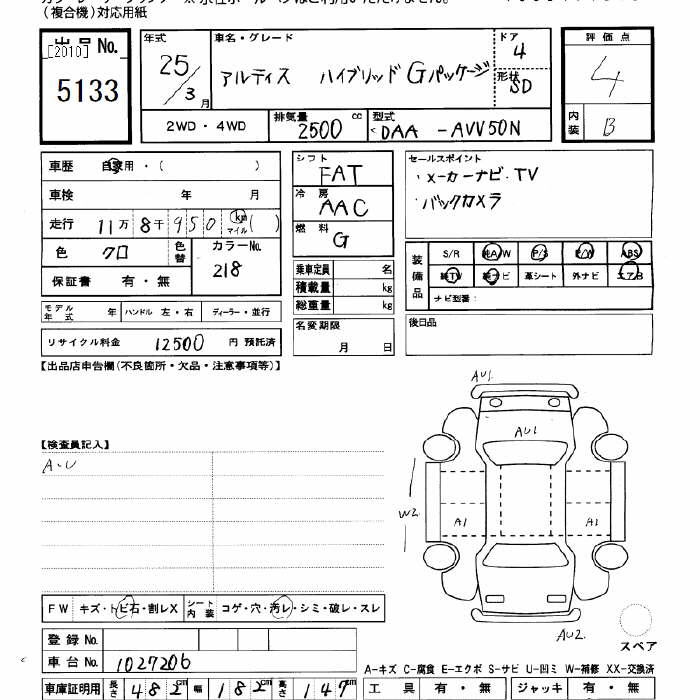 (複合機)対応用紙
出品No.
[2010]
5133
年式
25/3月
車名・グレード
アルティス ハイブリッド Gパッケージ
ドア
4
形状
SD
2WD・4WD
排気量
2500 cc
型式
DAA -AVV50N
評価点
4
内装
B
車歴 自家用・( )
車検 年 月
走行 11万8千950 km マイル( )
色 クロ
色替
カラーNo.
218
保証書 有・無
モデル年式 年 ハンドル 左・右 ディーラー・並行
リサイクル料金 12500 円 預託済
シフト
FAT
冷房
AAC
燃料
G
乗車定員 名
積載量 kg
総重量 kg
名変期限
月 日
セールスポイント
・メーカーナビ・TV
・バックカメラ
装備品
S/R 純A/W P/S P/W ABS
純TV 純ナビ 革シート 外ナビ エアB
ナビ型番:
後日品
【出品店申告欄(不良箇所・欠品・注意事項等)】
【検査員記入】
A・U
AU1
AU1
W2
A1
A1
AU2
スペア
FW キズ・トビ石・割レX
シート内装 コゲ・穴・汚レ・シミ・破レ・スレ
登録No.
車台No. 1027206
車庫証明用 長さ 482cm 幅 182cm 高さ 147cm
A-キズ C-腐食 E-エクボ S-サビ U-凹ミ W-補修 XX-交換済
工具 有・無 ジャッキ 有・無